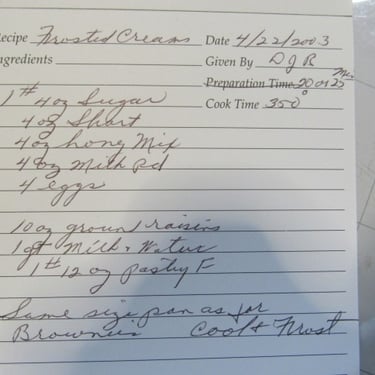 Recipe Frosted Creams Date 4/22/2003
Ingredients Given By DJR
Preparation Time 20 or 25 Min
1# 4oz Sugar Cook Time 350°
4 oz Short
4oz hony Mix
4 oz Milk Pd
4 eggs
10 oz ground raisins
1 qt Milk + Water
1# 12 oz Pastry F
Same size pan as for
Brownies Cool + Frost